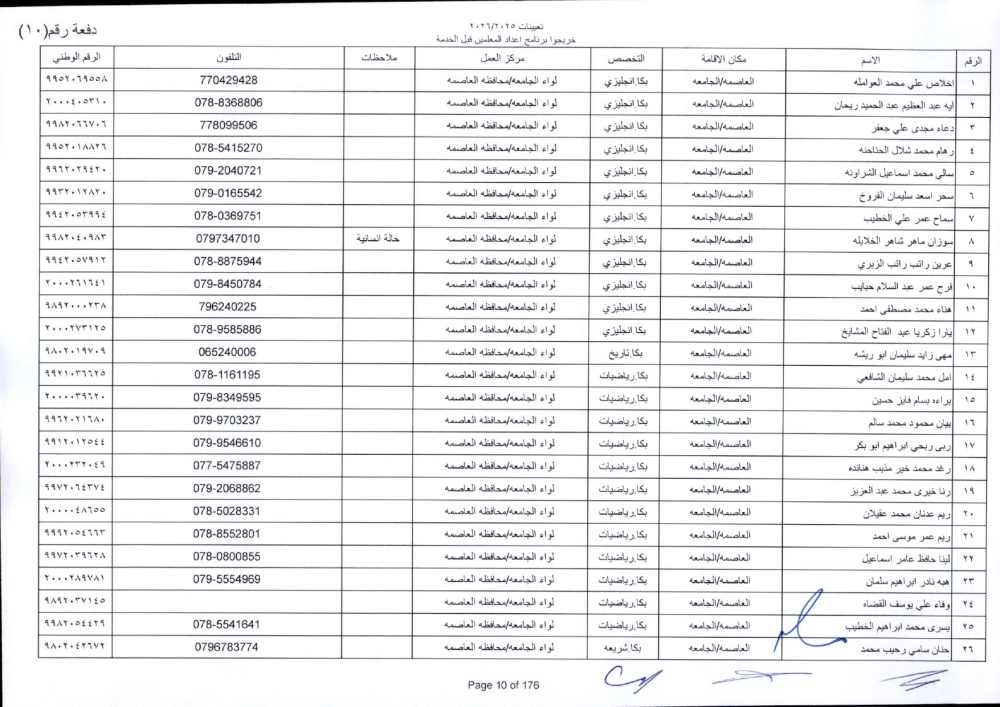 دفعة رقم(١٠)
تعيينات ٢٠٢٦/٢٠٢٥
خريجوا برنامج اعداد المعلمين قبل الخدمة
الرقم الاسم مكان الاقامة التخصص مركز العمل ملاحظات التلفون الرقم الوطني
١ اخلاص علي محمد العوامله العاصمه/الجامعه بكا.إنجليزي لواء الجامعه/محافظه العاصمه 770429428 ٩٩٥٢٠٦٩٥٥٨
٢ ايه عبد العظيم عبد الحميد ريحان العاصمه/الجامعه بكا.إنجليزي لواء الجامعه/محافظه العاصمه 078-8368806 ٢٠٠٠٤٠٥٣١٠
٣ دعاء مجدى علي جعفر العاصمه/الجامعه بكا.إنجليزي لواء الجامعه/محافظه العاصمه 778099506 ٩٩٨٢٠٦٦٧٠٦
٤ رهام محمد شلال الحناحنه العاصمه/الجامعه بكا.إنجليزي لواء الجامعه/محافظه العاصمه 078-5415270 ٩٩٥٢٠١٨٨٢٦
٥ سالي محمد اسماعيل الشراونه العاصمه/الجامعه بكا.إنجليزي لواء الجامعه/محافظه العاصمه 079-2040721 ٩٩٦٢٠٢٩٤٢٠
٦ سحر اسعد سليمان الفروخ العاصمه/الجامعه بكا.إنجليزي لواء الجامعه/محافظه العاصمه 079-0165542 ٩٩٣٢٠١٢٨٢٠
٧ سماح عمر علي الخطيب العاصمه/الجامعه بكا.إنجليزي لواء الجامعه/محافظه العاصمه 078-0369751 ٩٩٤٢٠٥٣٩٩٤
٨ سوزان ماهر شاهر الخلايله العاصمه/الجامعه بكا.إنجليزي لواء الجامعه/محافظه العاصمه حالة انسانية 0797347010 ٩٩٨٢٠٤٠٩٨٣
٩ عرين راتب راتب الزبري العاصمه/الجامعه بكا.إنجليزي لواء الجامعه/محافظه العاصمه 078-8875944 ٩٩٤٢٠٥٧٩١٢
١٠ فرح عمر عبد السلام حبايب العاصمه/الجامعه بكا.إنجليزي لواء الجامعه/محافظه العاصمه 079-8450784 ٢٠٠٠٢٦١٦٤١
١١ هناء محمد مصطفى احمد العاصمه/الجامعه بكا.إنجليزي لواء الجامعه/محافظه العاصمه 796240225 ٩٨٩٢٠٠٠٢٣٨
١٢ يارا زكريا عبد الفتاح المشايخ العاصمه/الجامعه بكا.إنجليزي لواء الجامعه/محافظه العاصمه 078-9585886 ٢٠٠٠٢٧٣١٢٥
١٣ مهى زايد سليمان ابو ريشه العاصمه/الجامعه بكا.تاريخ لواء الجامعه/محافظه العاصمه 065240006 ٩٨٠٢٠١٩٧٠٩
١٤ امل محمد سليمان الشافعي العاصمه/الجامعه بكا.رياضيات لواء الجامعه/محافظه العاصمه 078-1161195 ٩٩٢١٠٣٦٦٢٥
١٥ براءه بسام فايز حسين العاصمه/الجامعه بكا.رياضيات لواء الجامعه/محافظه العاصمه 079-8349595 ٢٠٠٠٠٣٩٦٢٠
١٦ بيان محمود محمد سالم العاصمه/الجامعه بكا.رياضيات لواء الجامعه/محافظه العاصمه 079-9703237 ٩٩٦٢٠٢١٦٨٠
١٧ ربى ربحي ابراهيم ابو بكر العاصمه/الجامعه بكا.رياضيات لواء الجامعه/محافظه العاصمه 079-9546610 ٩٩١٢٠١٢٥٤٤
١٨ رغد محمد خير مذيب هنانده العاصمه/الجامعه بكا.رياضيات لواء الجامعه/محافظه العاصمه 077-5475887 ٢٠٠٠٢٣٢٠٤٩
١٩ رنا خيرى محمد عبد العزيز العاصمه/الجامعه بكا.رياضيات لواء الجامعه/محافظه العاصمه 079-2068862 ٩٩٧٢٠٦٤٣٧٤
٢٠ ريم عدنان محمد عقيلان العاصمه/الجامعه بكا.رياضيات لواء الجامعه/محافظه العاصمه 078-5028331 ٢٠٠٠٠٤٨٦٥٥
٢١ ريم عمر موسى احمد العاصمه/الجامعه بكا.رياضيات لواء الجامعه/محافظه العاصمه 078-8552801 ٩٩٩٢٠٥٤٦٦٣
٢٢ لينا حافظ عامر اسماعيل العاصمه/الجامعه بكا.رياضيات لواء الجامعه/محافظه العاصمه 078-0800855 ٩٩٧٢٠٣٩٦٢٨
٢٣ هبه نادر ابراهيم سلمان العاصمه/الجامعه بكا.رياضيات لواء الجامعه/محافظه العاصمه 079-5554969 ٢٠٠٠٢٨٩٧٨١
٢٤ وفاء علي يوسف القضاه العاصمه/الجامعه بكا.رياضيات لواء الجامعه/محافظه العاصمه ٩٨٩٢٠٣٧١٤٥
٢٥ يسرى محمد ابراهيم الخطيب العاصمه/الجامعه بكا.رياضيات لواء الجامعه/محافظه العاصمه 078-5541641 ٩٩٨٢٠٥٤٤٢٩
٢٦ حنان سامي رحيب محمد العاصمه/الجامعه بكا.شريعه لواء الجامعه/محافظه العاصمه 0796783774 ٩٨٠٢٠٤٢٦٧٢
Page 10 of 176